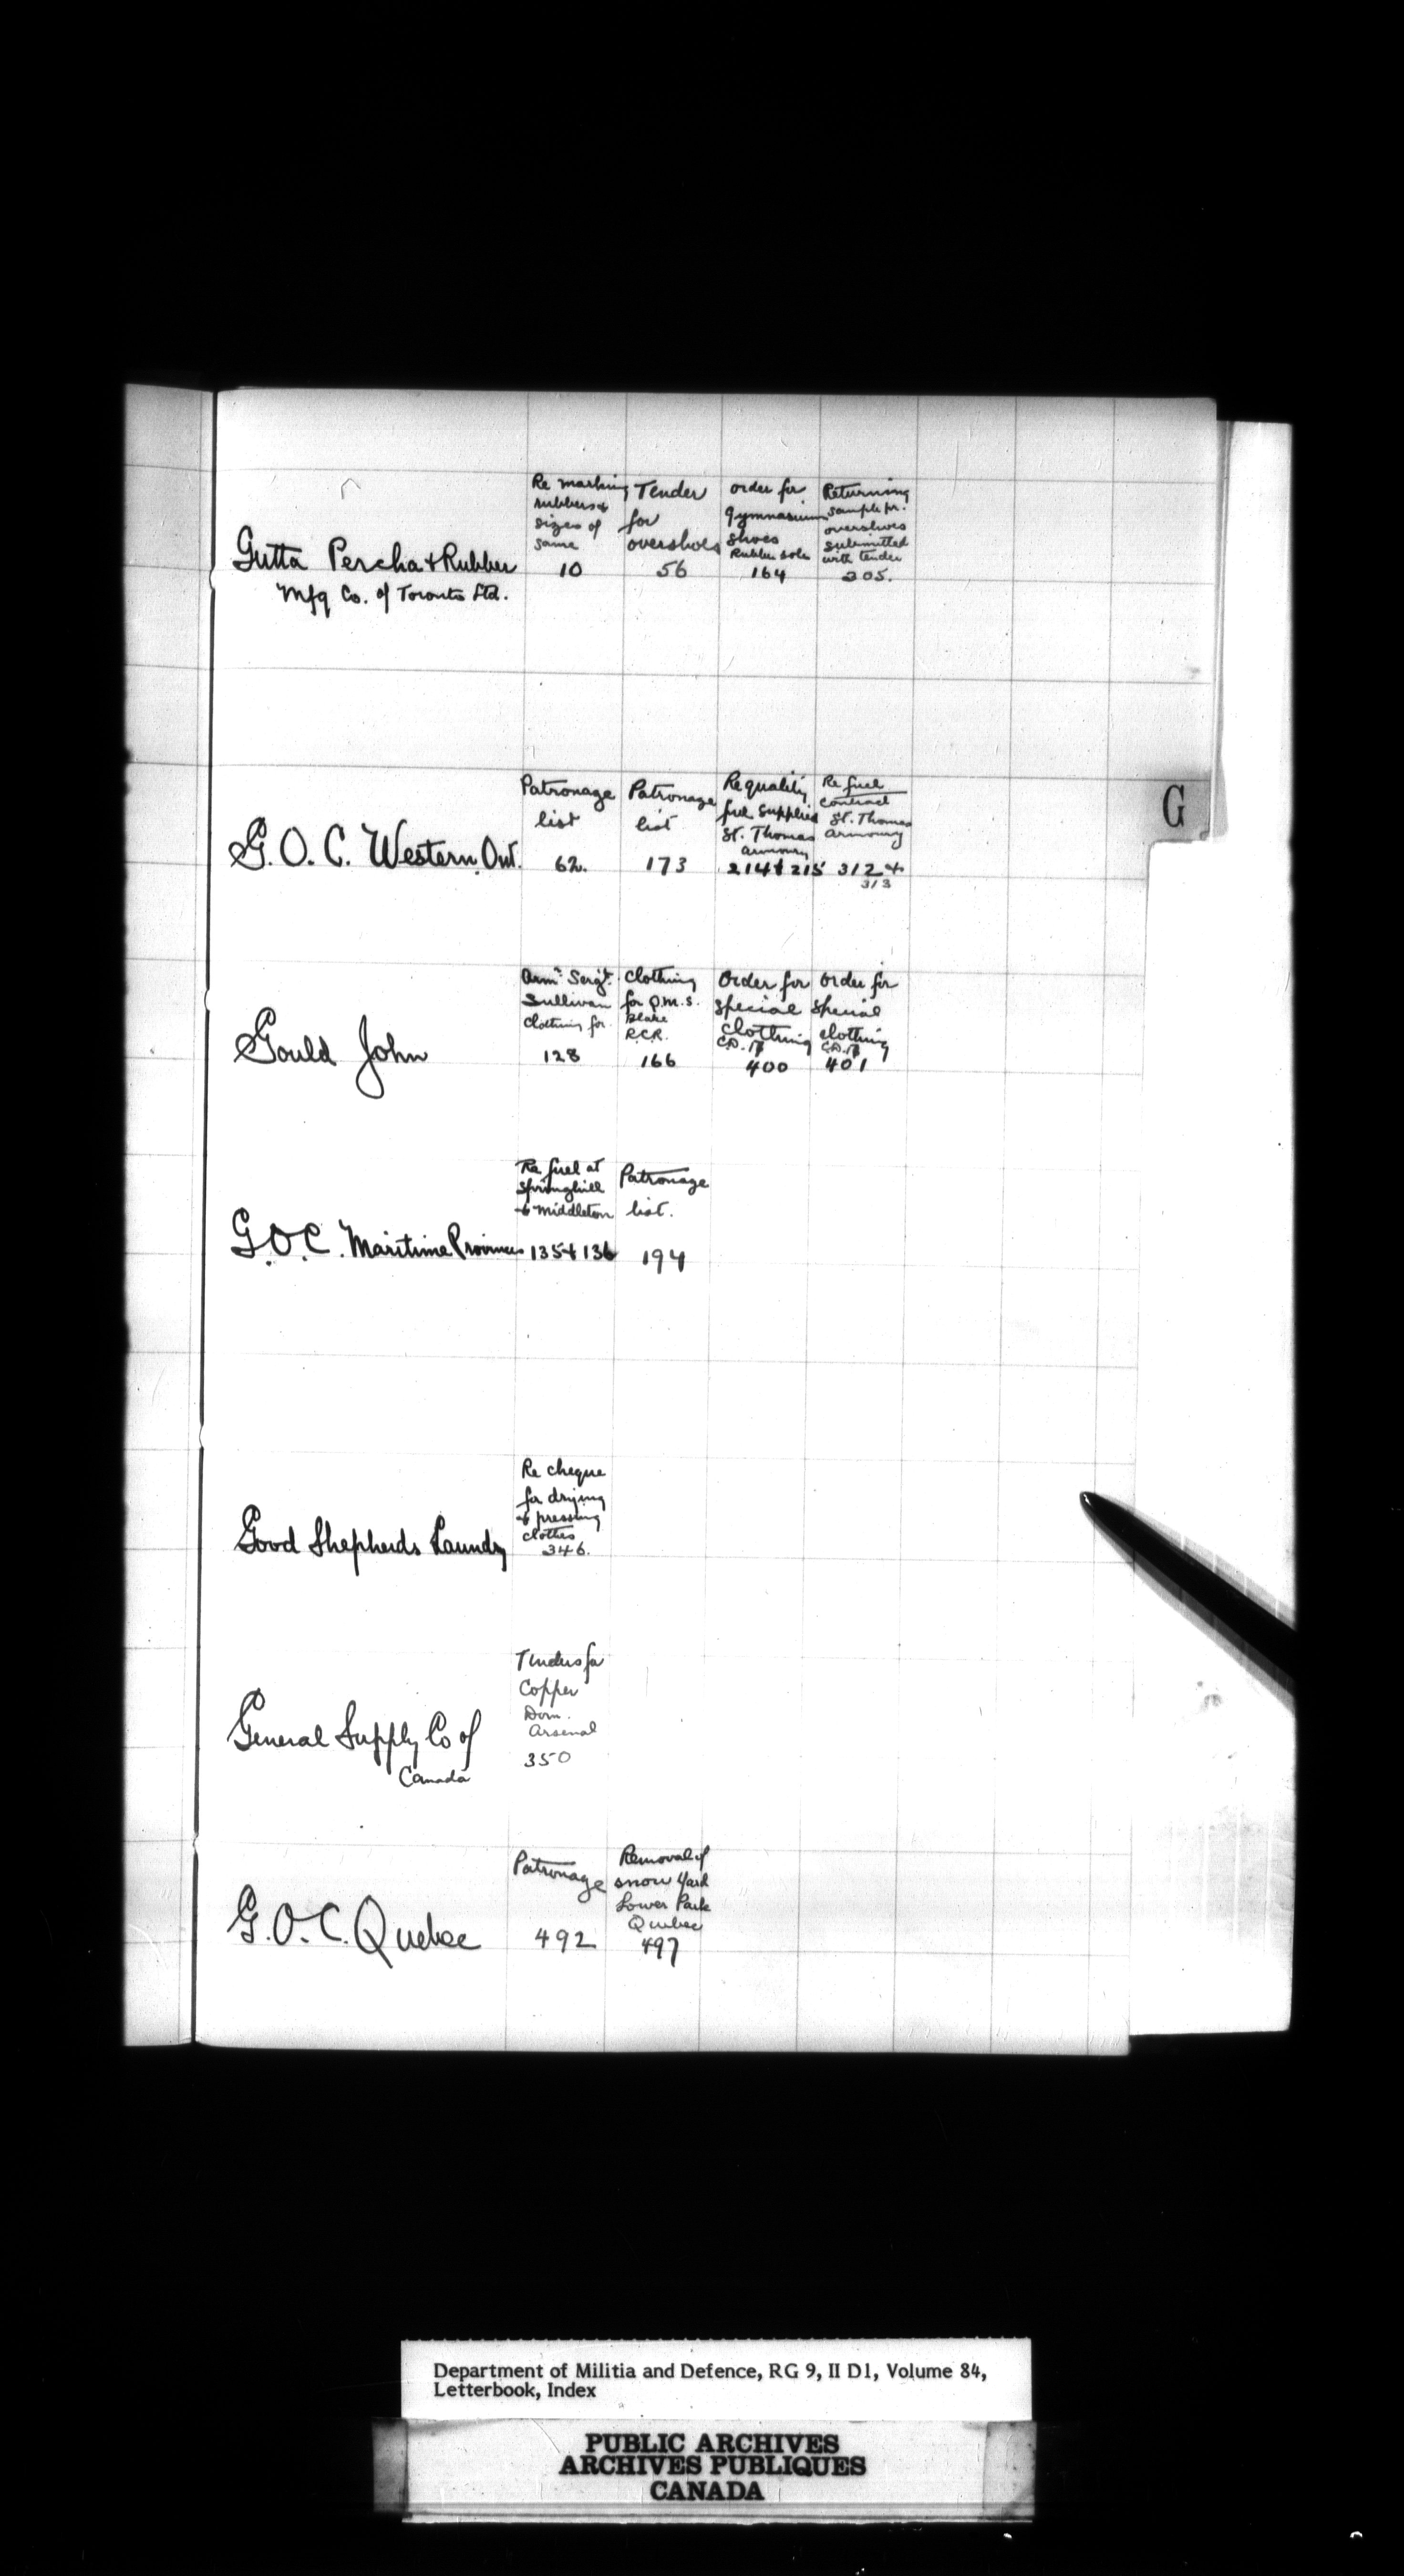 Re marking
rubbers &
sizes of
same
10
Tender
for
overshoes
56
order for
gymnasium
shoes
Rubber sole
164
Returning
sample pr.
overshoes
submitted
with tender
205.
Gutta Percha & Rubber
Mfg Co. of Toronto Ltd.
G
Patronage
list
62.
Patronage
list
173
Re quality
fuel supplied
St. Thomas
armoury
214 & 215
Re fuel
contract
St. Thomas
armoury
312 &
313
G. O. C. Western Ont.
Armr Sergt.
Sullivan
clothing for
128
Clothing
for Q.M.S.
Blake
R.C.R.
166
Order for
special
clothing
400
Order for
special
clothing
401
Gould John
Re fuel at
Springhill
& Middleton
135 & 136
Patronage
list.
194
G.O.C. Maritime Provinces
Re cheque
for drying
& pressing
clothes
346.
Good Shepherds Laundry
Tenders for
Copper
Dom.
Arsenal
350
General Supply Co of
Canada
Patronage
492
Removal of
snow Yard
Lower Park
Quebec
497
G. O. C. Quebec
Department of Militia and Defence, RG 9, II D1, Volume 84,
Letterbook, Index
PUBLIC ARCHIVES
ARCHIVES PUBLIQUES
CANADA